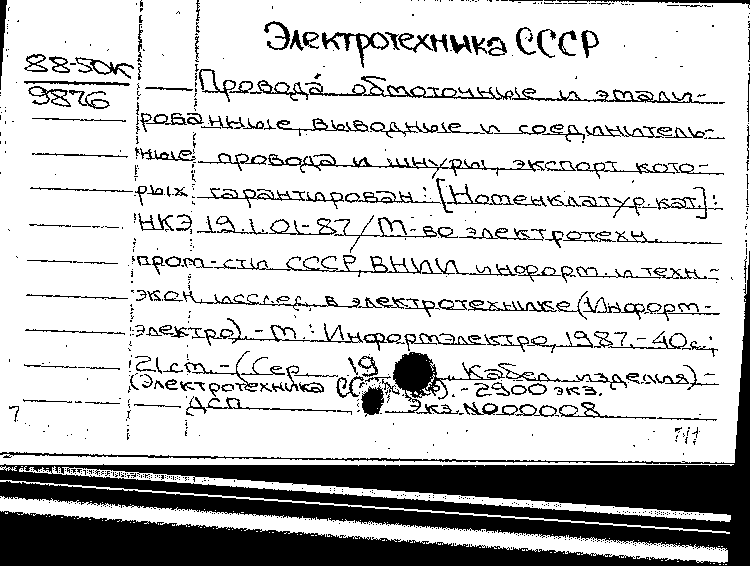 Электротехника СССР
88-50К
9876
Провода обмоточные и эмали-
рованные, выводные и соединитель-
ные провода и шнуры, экспорт кото-
рых гарантирован: [Номенклатур. кат.]:
НКЭ 19.1.01-87 / М-во электротехн.
пром-сти СССР, ВНИИ информ. и техн.-
экон. исслед. в электротехнике (Информ-
электро). - М.: Информэлектро, 1987. - 40 с.;
21 см. - (Сер. 19 Кабел. изделия). -
(Электротехника СССР). - 2900 экз.
ДСП Экз. N000008
7